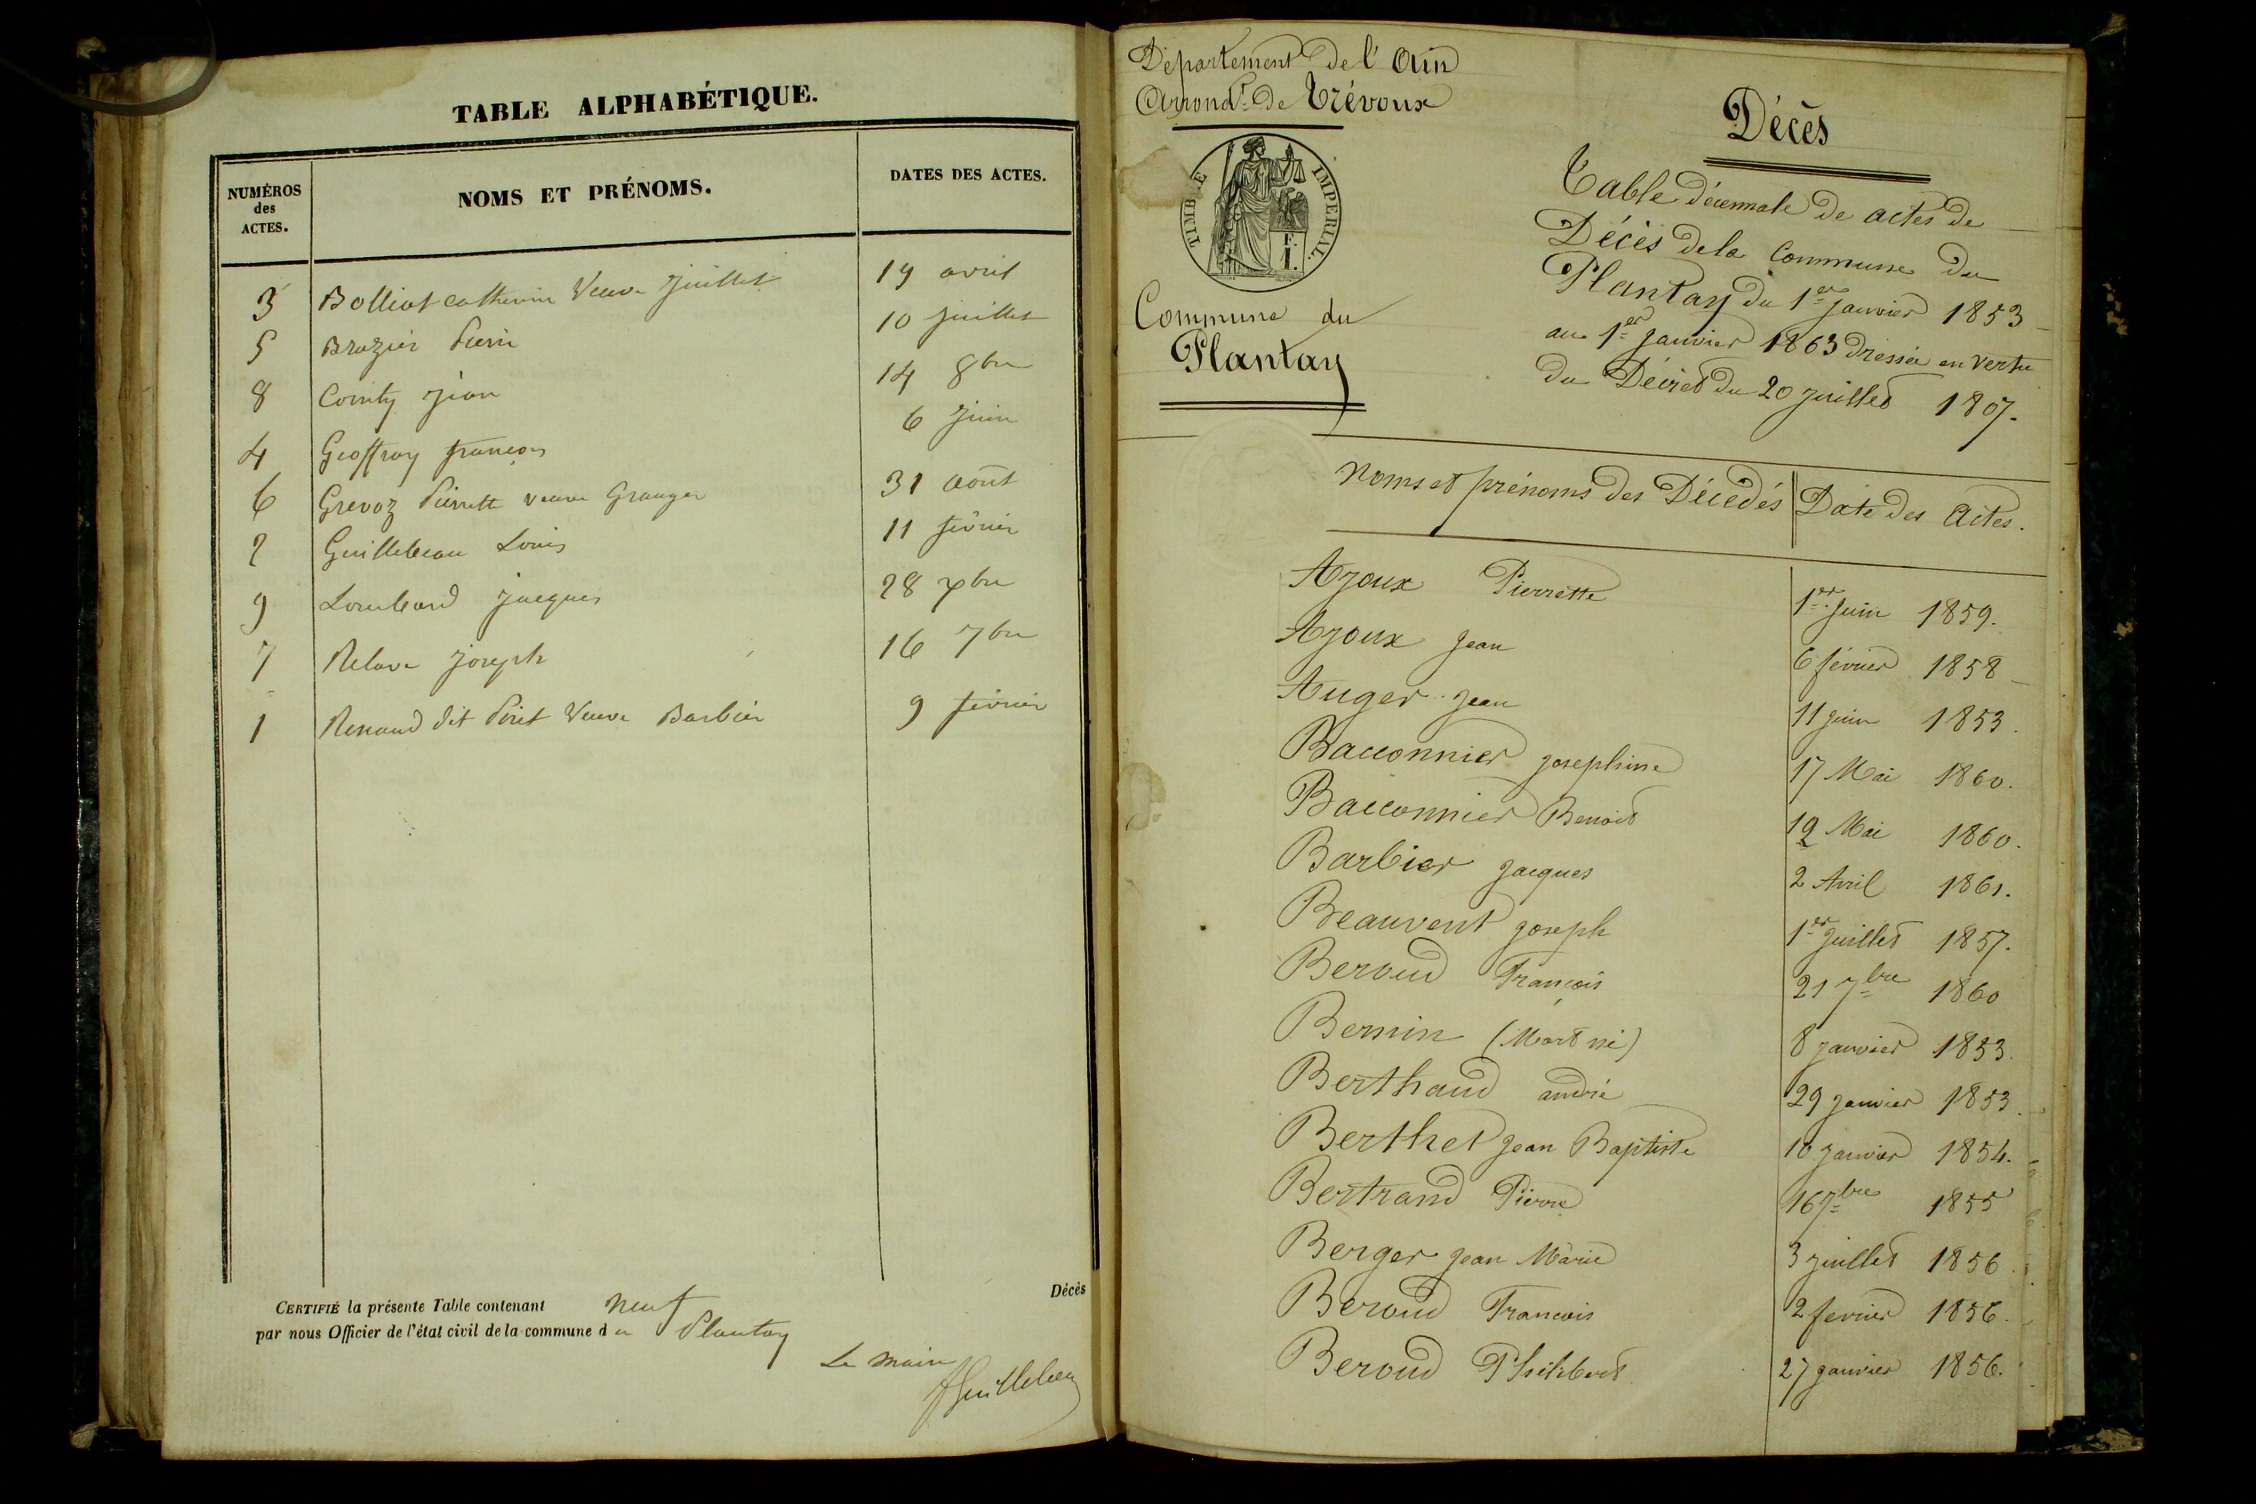 TABLE ALPHABÉTIQUE.
NUMÉROS
des
ACTES.
NOMS ET PRÉNOMS.
DATES DES ACTES.
3 Bolliat Catherine Veuve Juillet 19 avril
5 Brazier Pierre 10 Juillet
8 Cointy Jean 14 8bre
4 Geoffray françois 6 Juin
6 Grevoz Pierrette veuve Granger 31 août
2 Guillebeau Louis 11 fevrier
9 Lombard Jacques 28 xbre
7 Relave Joseph 16 7bre
1 Renaud dit Piret Veuve Barbier 9 fevrier
Décès
CERTIFIÉ la présente Table contenant neuf
par nous Officier de l'état civil de la commune du Plantay
Le maire
Guillebeau
Département de l'Ain
Arrondt de Trévoux
TIMBRE IMPERIAL.
F.
I.
Commune du
Plantay
Décès
Table décennale de actes de
Décès de la Commune du
Plantay du 1er Janvier 1853
au 1er Janvier 1863 dressée en vertu
du Décret du 20 Juillet 1807.
Noms et prénoms des Décédés Date des Actes.
Ajoux Pierrette 1er Juin 1859.
Ajoux Jean 6 février 1858
Auger Jean 11 Juin 1853.
Bacconnier Josephine 17 Mai 1860.
Bacconnier Benoit 19 Mai 1860.
Barbier Jacques 2 Avril 1861.
Beauvent Joseph 1er Juillet 1857.
Beroud François 21 7bre 1860
Bernin (Mort né) 8 Janvier 1853.
Berthaud andré 29 Janvier 1853.
Berthet Jean Baptiste 10 Janvier 1854.
Bertrand Pierre 16 7bre 1855
Berger Jean Marie 3 Juillet 1856.
Beroud Francois 2 fevrier 1856.
Beroud Philibert 27 Janvier 1856.